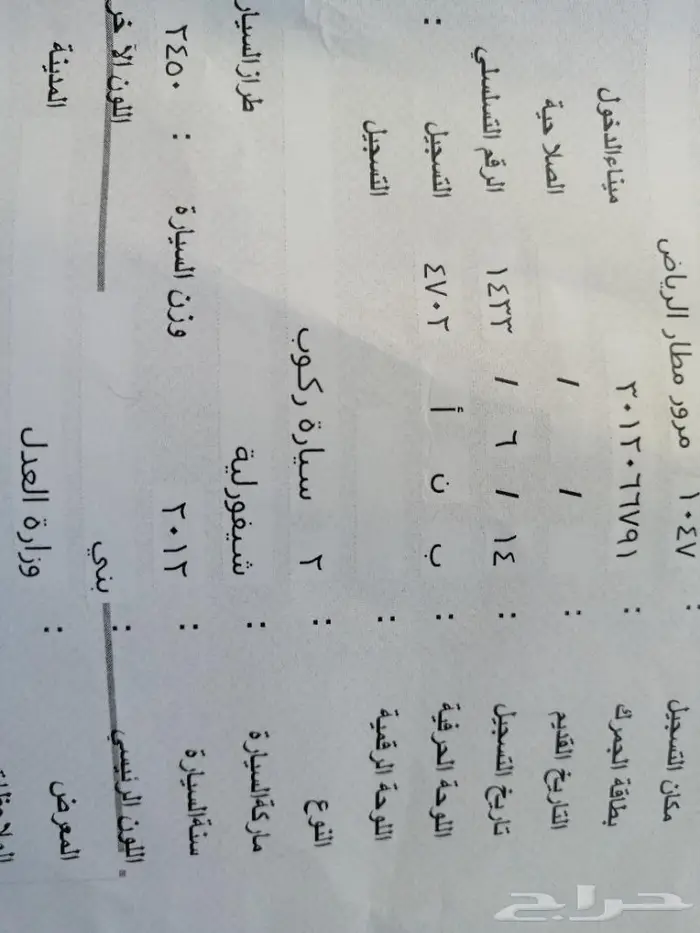 مكان التسجيل : ١٠٤٧ مرور مطار الرياض
بطاقة الجمرك : ٣٠١٢٠٦٦٧٩١ ميناء الدخول
التاريخ القديم : / / الصلاحية
تاريخ التسجيل : ١٤ / ٦ / ١٤٣٣ الرقم التسلسلي
اللوحة الحرفية : ب ن أ ٤٧٠٢ التسجيل :
اللوحة الرقمية : التسجيل
النوع : ٢ سيارة ركوب
ماركة السيارة : شيفورلية طراز السيار
سنة السيارة : ٢٠١٢ وزن السيارة : ٢٤٥٠
اللون الرئيسي : بني اللون الآخر
المعرض : وزارة العدل المدينة
حراج